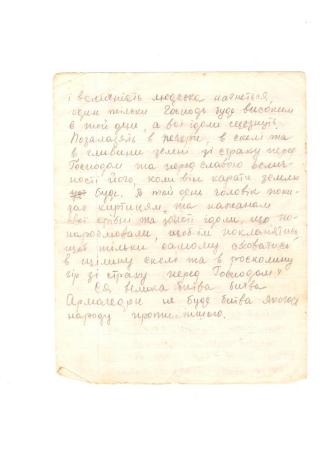 і вельність людська нагнеться,
один тільки Господь буде високим
в той день, а всі ідоли щезнуть.
Позалазять в печери, в скелі та
в глибини землі зі страху перед
Господом та перед славою велич-
ності його, коли він карати землю
буде. В той день чоловік поки-
дає кертицям, та кажанам
свої срібні та золоті ідоли, що по-
нароблювали, щоб їм поклонятись
щоб тільки самому сховатись
в щілину скелі та в росколину
гір зі страху перед Господом."
Ся велика битва битва
Армагедон не буде битва якогось
народу проти іншого.